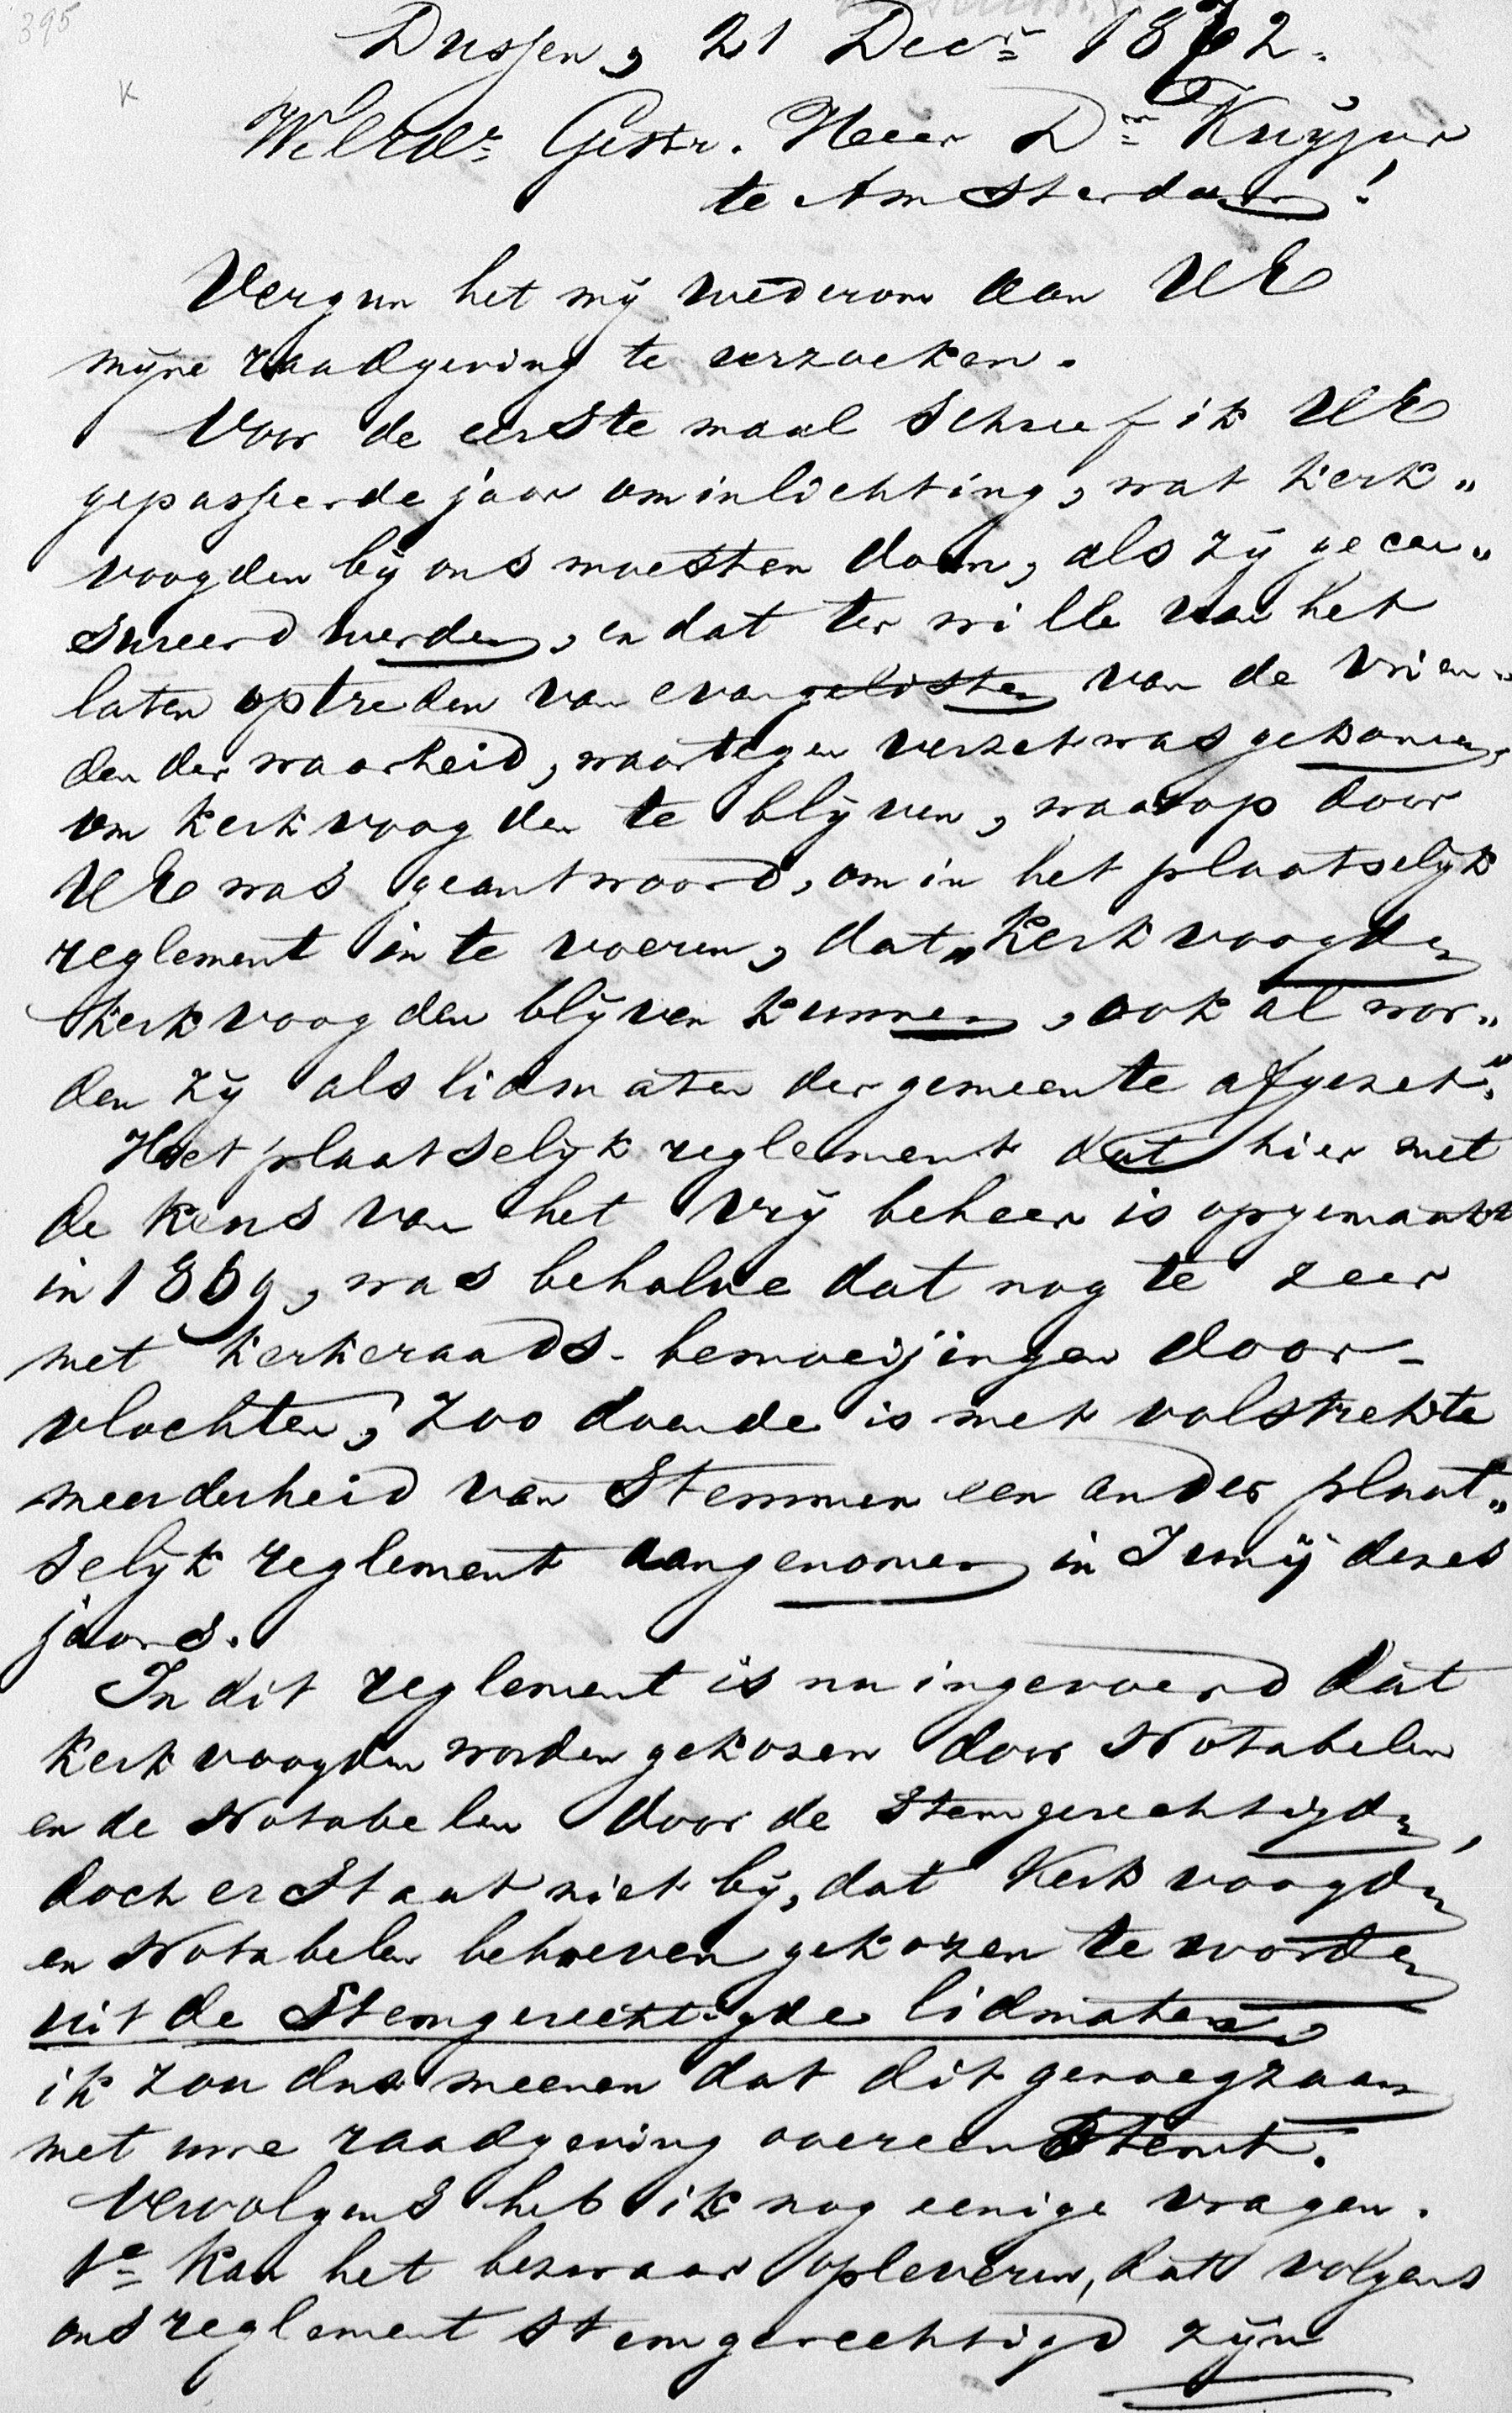 395
Dussen, 21 Decr 1872.
WelEdr Gestr. Heer Dr Kuyper
te Amsterdam!
Vergun het mij wederom aan UE
mijne raadgeving te verzoeken.
Voor de eerste maal schreef ik UE
gepasseerde jaar om inlichting, wat kerk„
voogden bij ons moesten doen, als zij gecen„
sureerd werden, en dat ter wille van het
laten optreden van evangelisten van de vrien„
den der waarheid, waartegen verzet was gekomen,
om kerkvoogden te blijven, waarop door
UE was geantwoord, om in het plaatselijk
reglement in te voeren, dat „Kerkvoogden
kerkvoogden blijven kunnen, ook al wor„
den zij als lidmaten der gemeente afgezet".
Het plaatselijk reglement dat hier met
de keus van het vrij beheer is opgemaakt
in 1869, was behalve dat nog te zeer
met kerkeraads-bemoeijingen door-
vlochten, zoo doende is met volstrekte
meerderheid van stemmen een ander plaat„
selijk reglement aangenomen in Junij dezes
jaars.
In dit reglement is nu ingevoerd dat
kerkvoogden worden gekozen door Notabelen
en de Notabelen door de stemgerechtigden,
doch er staat niet bij, dat Kerkvoogden
en Notabelen behoeven gekozen te worden
uit de stemgerechtigde lidmaten,
ik zou dus meenen dat dit genoegzaam
met uwe raadgeving overeenstemt.
Vervolgens heb ik nog eenige vragen.
1e Kan het bezwaar opleveren, dat volgens
ons reglement stemgerechtigd zijn